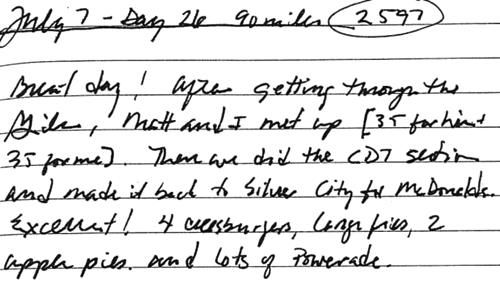 July 7 - Day 26 90 miles 2597
Great day! After getting through the
Gila, Matt and I met up [35 for him +
35 for me]. Then we did the CDT section
and made it back to Silver City for McDonalds.
Excellent! 4 cheesburgers, large fries, 2
apple pies. and lots of Powerade.